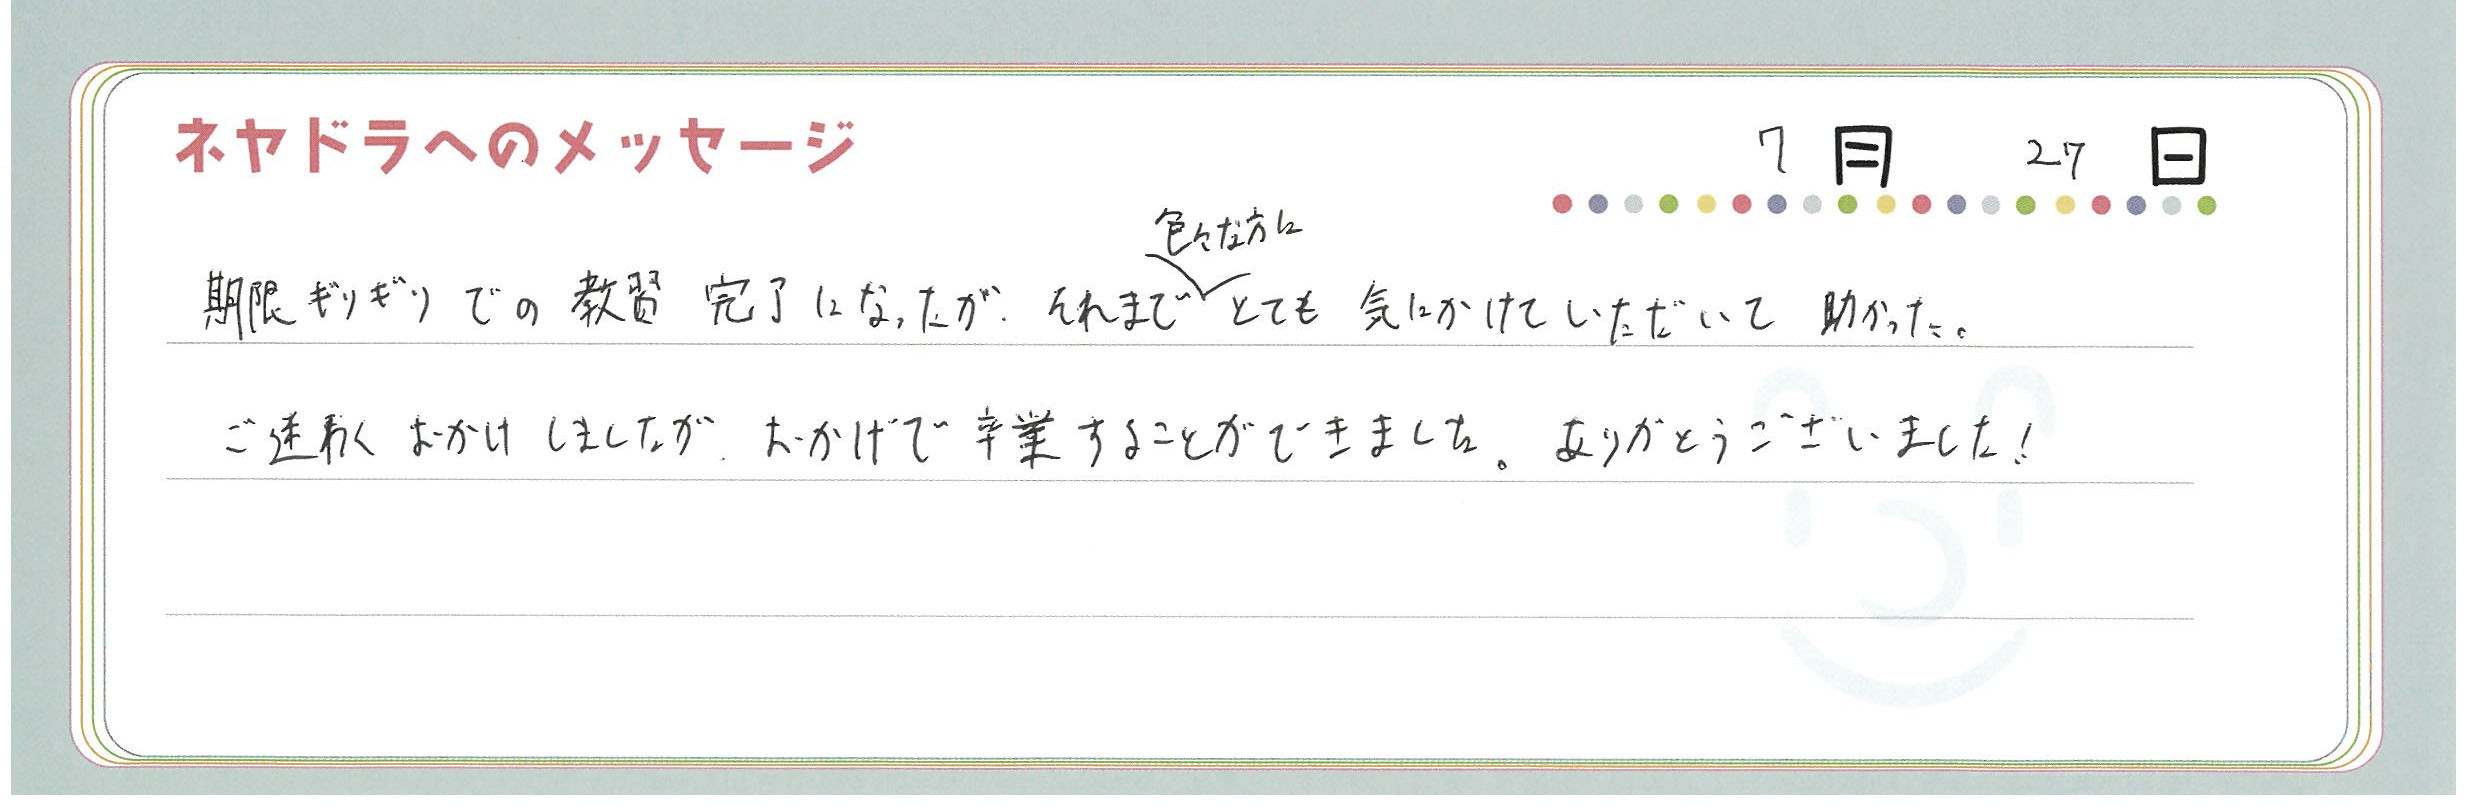 ネヤドラへのメッセージ
7月 27日
色々な方に
期限ギリギリでの教習完了になったが、それまでとても気にかけていただいて助かった。
ご迷惑おかけしましたが、おかげで卒業することができました。ありがとうございました!